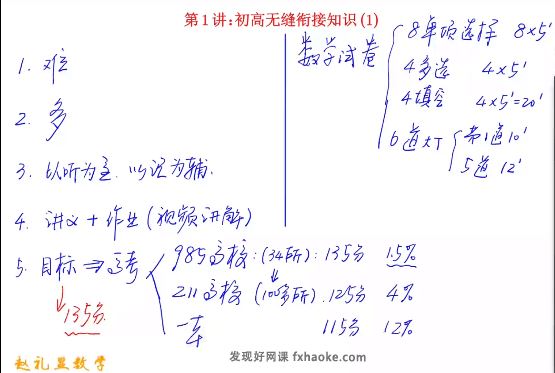 第1讲:初高无缝衔接知识(1)
1. 难
2. 多
3. 以听为主, 以记为辅.
4. 讲义 + 作业 (视频讲解)
5. 目标 ⇒ 高考
135分
985高校: (34所): 135分 1.5%
211高校 (100多所). 125分 4%
一本 115分 12%
数学试卷
8单项选择 8×5'
4多选 4×5'
4填空 4×5'=20'
6道大T
第1道10'
5道 12'
赵礼显数学
发现好网课 fxhaoke.com